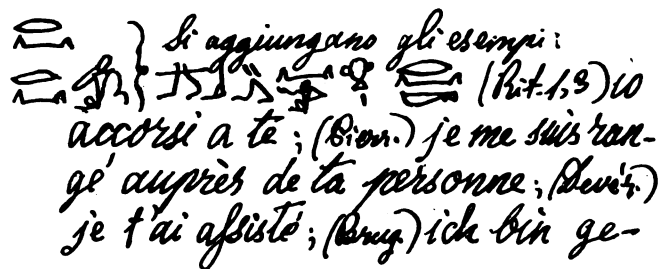 Si aggiungano gli esempi:
(Rit. 1,3) io
accorsi a te; (Pierr.) je me suis ran-
gé auprès de ta personne; (Devér.)
je t'ai assisté; (Brug.) ich bin ge-